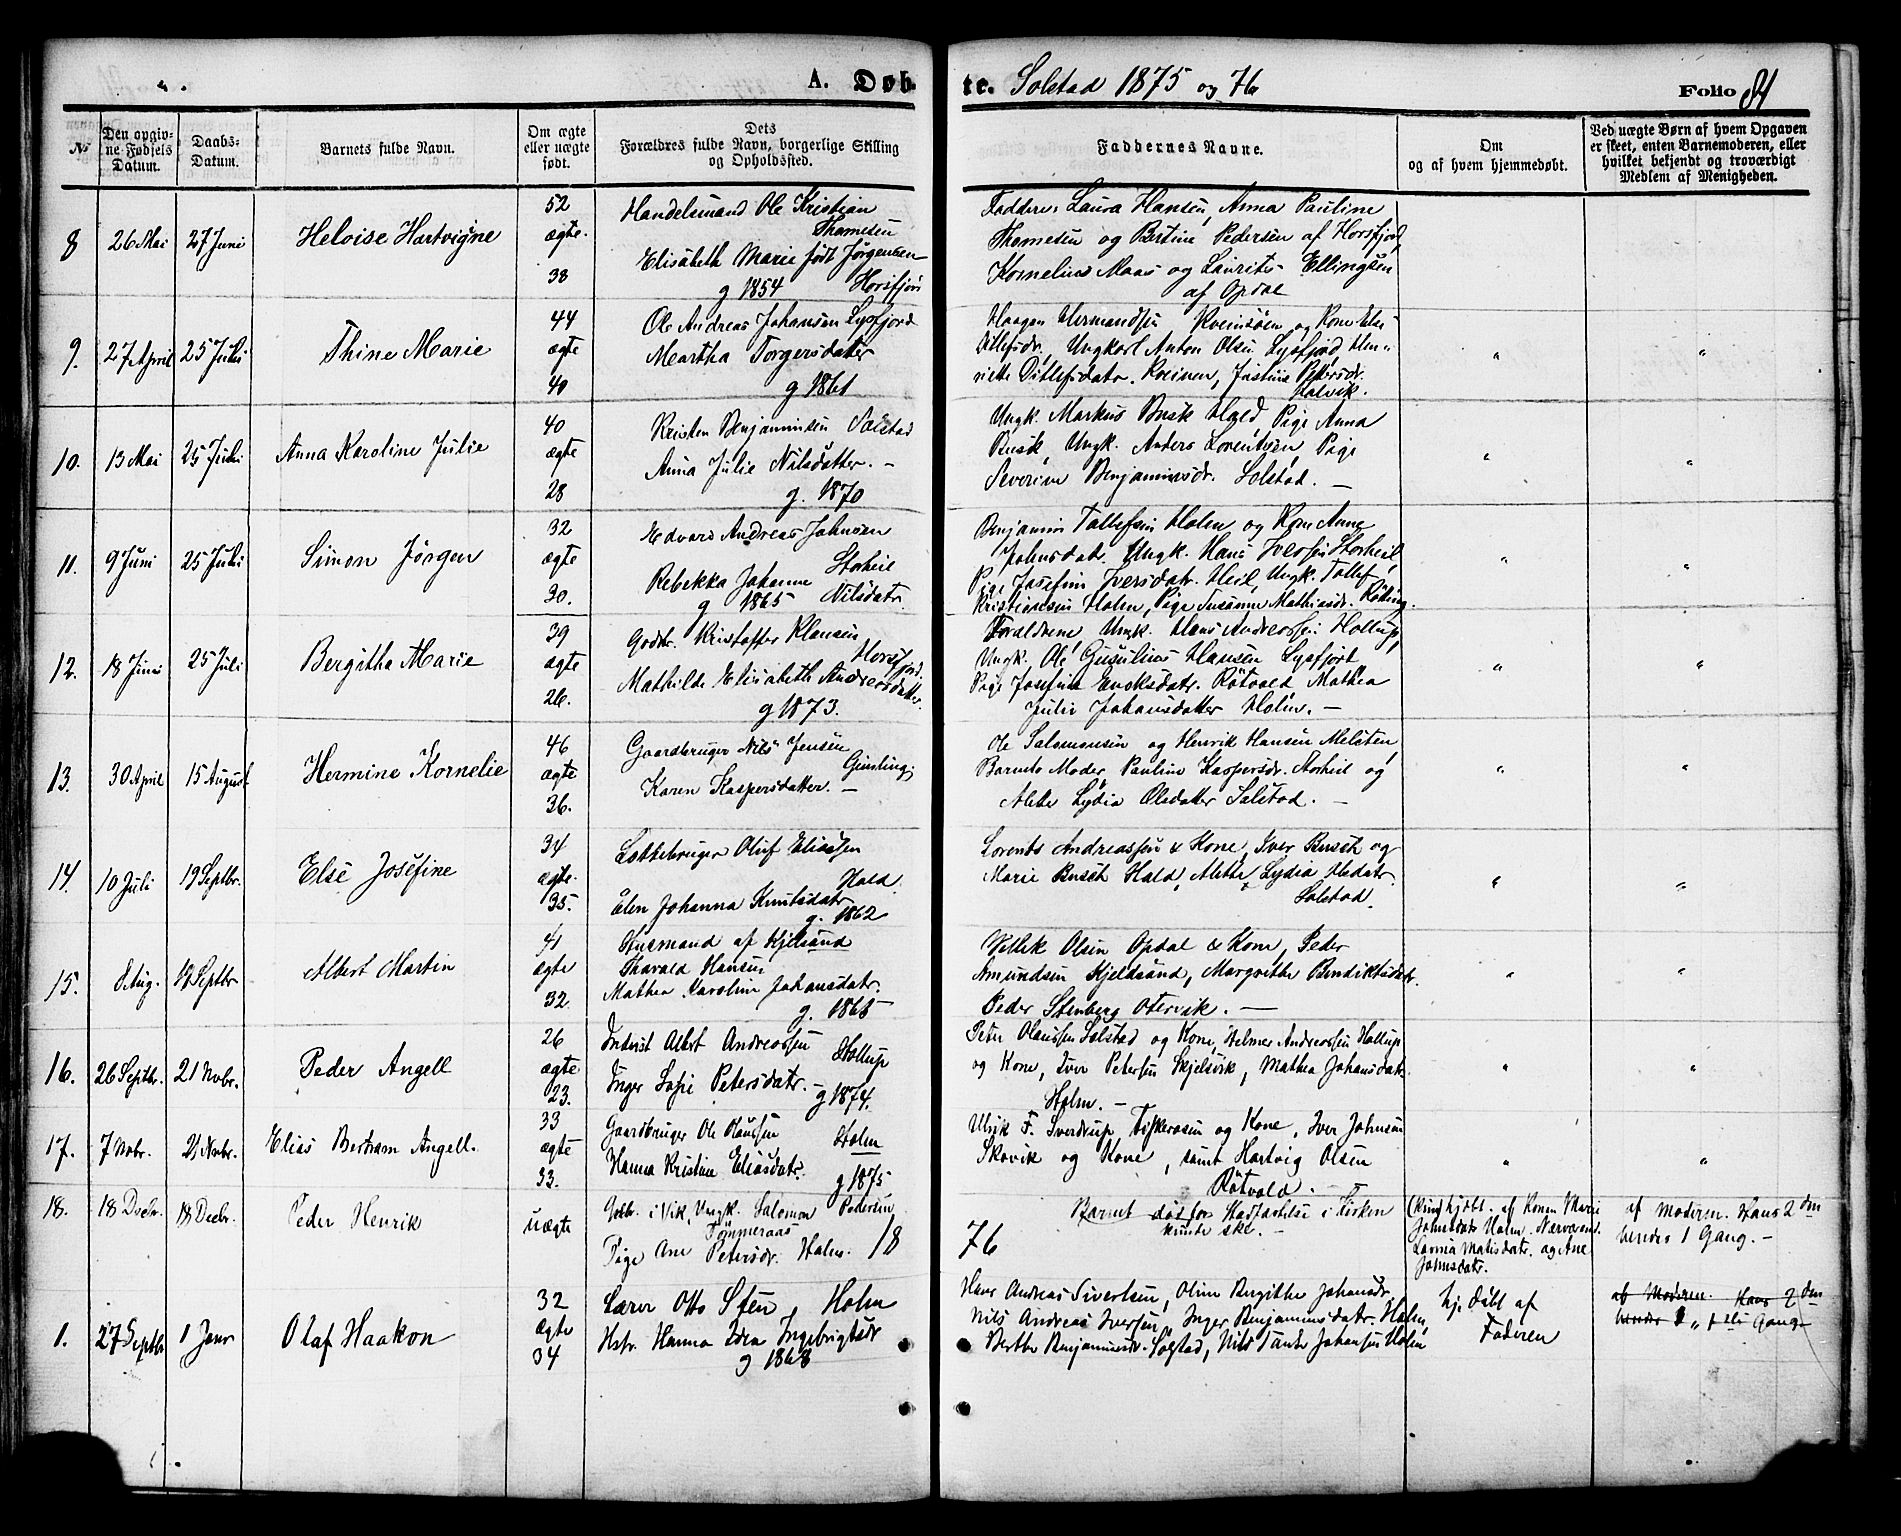 A. Døbte. Solstad 1875 og 76
Folio 84
№
Den opgivne Fødsels Datum.
Daabs-Datum.
Barnets fulde Navn.
Om ægte eller uægte født.
Dets Forældres fulde Navn, borgerlige Stilling og Opholdssted.
Faddernes Navne.
Om og af hvem hjemmedøbt.
Ved uægte Børn af hvem Opgaven er skeet, enten Barnemoderen, eller hvilket bekjendt og troværdigt Medlem af Menigheden.
8 26 Mai 27 Juni Heloise Hartvigne
52 ægte. 38
Handelsmand Ole Kristian
Thomesen
Elisabeth Marie født Jørgensen
g 1854 Horsfjord
Faddere: Laura Hansen, Anna Pauline
Thomesen og Bertine Pedersen af Horsfjord,
Kornelius Maas og Laurits Ellingsen
af Opdal
9. 27 April 25 Juli Thine Marie
44 ægte 40
Ole Andreas Johansen Lysfjord
Martha Torgersdatter
g 1861
Haagen Hermandsen og Kone Else
Ditlefsdr, Ungkarl Anton Olsen Lysfjord, Hen-
riette Ditlefsdatr. Kveinen, Justine Petersdr.
10. 13 Mai 25 Juli Anna Karoline Julie
40 ægte 28
Kristen Benjaminsen Solstad
Anna Julie Nilsdatter. –
g. 1870
Ungk. Markus Busk Hald Pige Anna
Busk, Ungk. Anders Lorentsen, Pige
Severine Benjaminsdr. Solstad. –
11. 9 Juni 25 Juli Simon Jørgen
32 ægte 30.
Edvard Andreas Johnsen
Storheil
Rebekka Johanna Nilsdatr.
g 1865
Benjamin Tollefsen Holm og Kone Anne
Johnsdatr. Ungk. Hans Iversen Storheil,
Pige Josefine Iversdatr. Heil, Ungk. Tollef
Kristiansen Holm, Pige Susanne Mathiasdr. Røding.
12. 18 Juni 25 Juli Bergitha Marie
39 ægte 26.
Kristoffer Klausen
Horsfjord.
Mathilde Elisabeth Andreasdatter
g 1873.
Forældrene, Ungk. Hans Andreassen Hollup,
Ungk. Ole Hansen Lysfjort,
Pige Josefine Enoksdatr. Røtvold Mathea
Julie Johansdatter Holm. –
13. 30 April 15 August Hermine Kornelie
46 ægte 36.
Gaardbruger Nils Jensen
Karen Kaspersdatter. –
Ole Salomonsen og Henrik Hansen Melsten
Barnets Moder, Pauline Kaspersdr. Storheil og
Alette Lydia Olsdatter Solstad. –
14. 10 Juli 19 Septbr. Else Josefine
34 ægte. 35.
Oluf Eliassen
Hald.
Elen Johanna Knutsdatr.
g. 1862
Lorents Andreassen & Kone, Iver Busch og
Marie Busch Hald, Alette Lydia Olsdatr.
Solstad.
15. 8 Aug. 19 Septbr Albert Martin
41 ægte 32.
Husmand af Kjelsund
Tharald Hansen
Mathea Karoline Johansdatr.
g. 1865
Vellik Olsen Opdal & Kone, Peder
Amundsen Kjeldsund, Margrethe Bendiktsdatr.
Peder Stenberg Otervik. –
16. 26 Septbr. 21 Nvbr. Peder Angell
26 ægte 23.
Inderst Albert Andreassen
Hollup
Inger Sofie Petersdatr. –
g 1874.
Peter Olaussen Solstad og Kone, Helmer Andreassen Hollup
og Kone, Iver Petersen Skjelsvik, Mathea Johansdatr.
Holm. –
17. 7 Nvbr. 21 Nvbr. Elias Bertram Angell.
33 ægte 33.
Gaardbruger Ole Olaussen
Holm
Hanna Kristine Eliasdatr.
g 1875
Ulrik F. Sverdrup, Fiskerosen og Kone, Iver Johnsen
Skovik og Kone, samt Hartvig Olsen
Røtvold. –
18. 18 Decbr. 18 Decbr. Peder Henrik
uægte
i Vik, Ungk. Salomon Petersen
Tømmeraas
Pige Ane Petersdr. Holm. 18
76
Barnet død før Stadfæstelse i Kirken
kunde ske. –
hjdbt. af Konen Marie
Johnsdatr Holm. Nærværend.
Lavina Matisdatr. og Ane
Johnsdatr.
af Moderen. Hans 2den
hendes 1 Gang. –
1. 27 Septbr 1 Janr Olaf Haakon
32 ægte 34
Lærer Otto Steen, Holm
Hstr. Hanna Edea Ingebrigtsdr
g 1868
Hans Andreas Sivertsen, Oline Birgithe Johansdr,
Nils Andreas Iversen, Inger Benjaminsdatr. Holm,
Berthe Benjaminsdr. Solstad, Nils Tande Johansen Holm
hj. døbt af
Faderen
af Moderen. Hans 2den
hendes Gang.